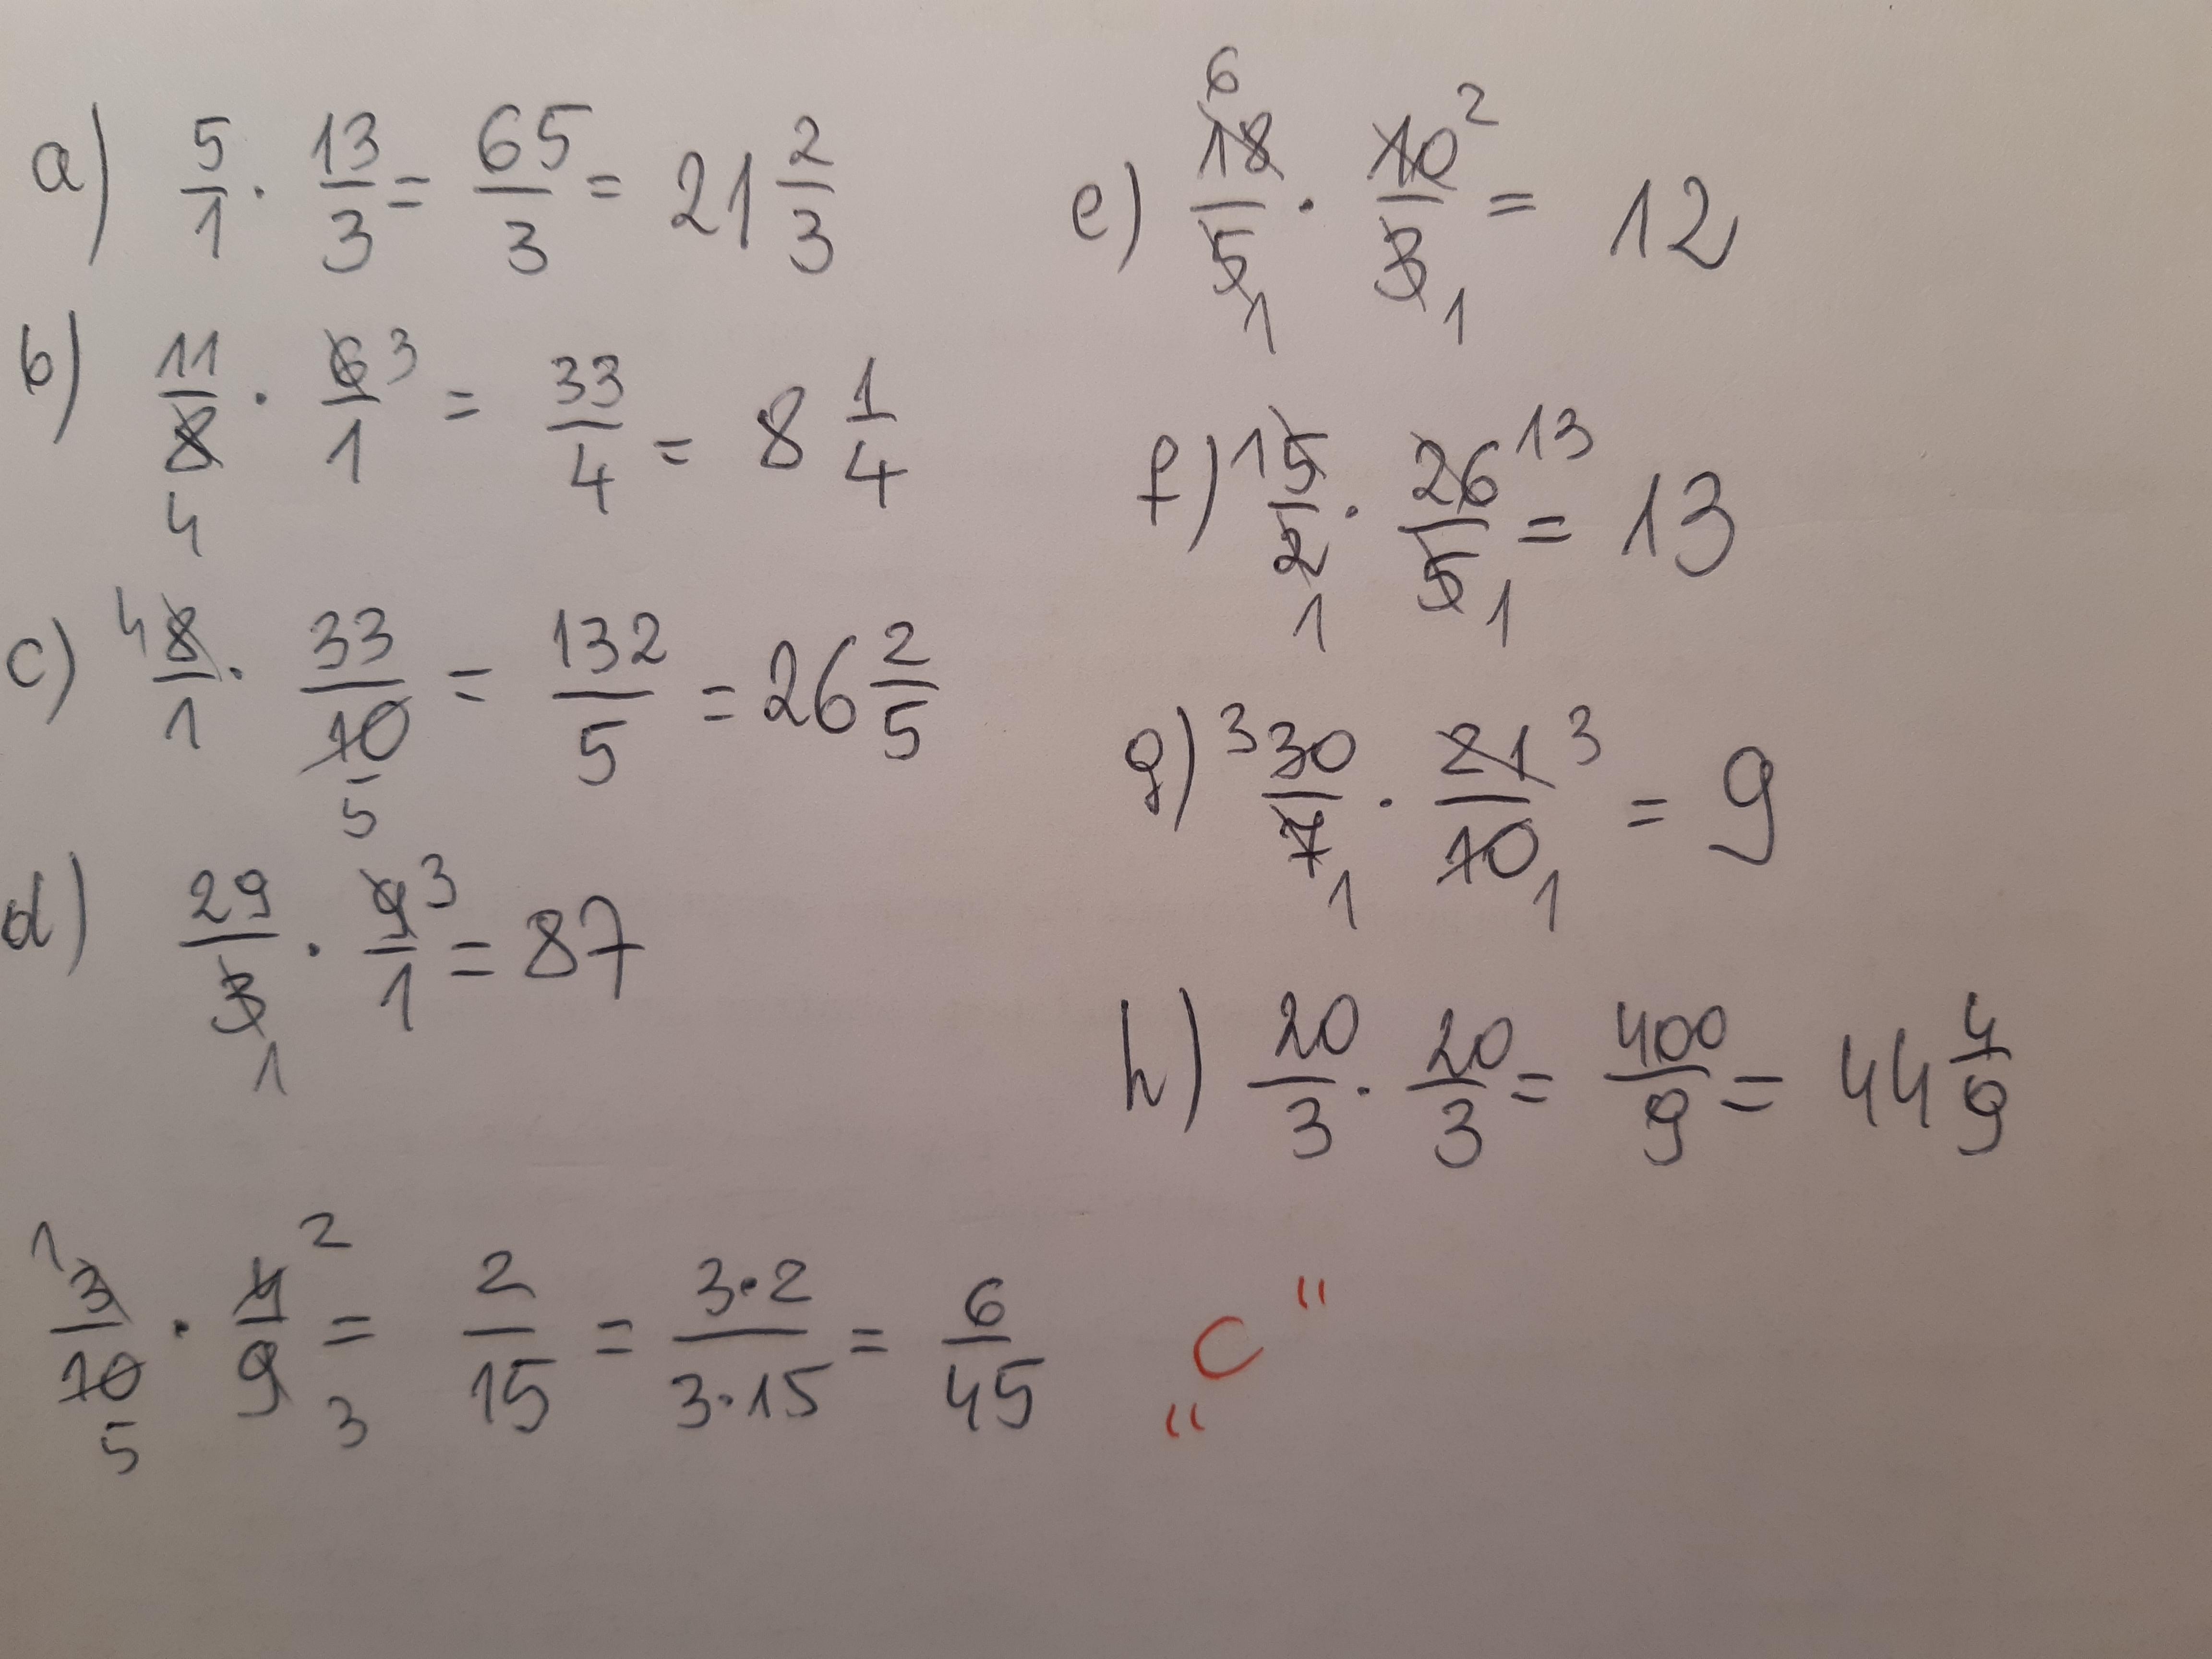 a) 5/1 · 13/3 = 65/3 = 21 2/3
b) 11/8 4 · 6 3/1 = 33/4 = 8 1/4
c) 4 8/1 · 33/10 5 = 132/5 = 26 2/5
d) 29/3 1 · 9 3/1 = 87
e) 6 18/5 1 · 10 2/3 1 = 12
f) 1 5/2 1 · 26 13/5 1 = 13
g) 3 30/7 1 · 21 3/10 1 = 9
h) 20/3 · 20/3 = 400/9 = 44 4/9
1 3/10 5 · 4 2/9 3 = 2/15 = 3·2/3·15 = 6/45 „C"